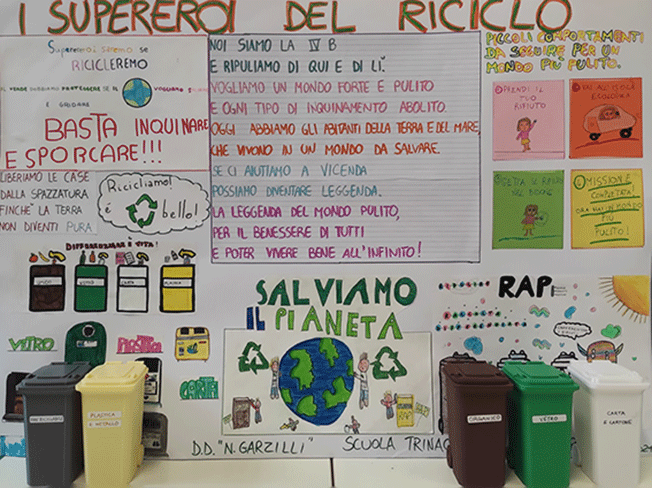 I SUPEREROI DEL RICICLO
Supereroi saremo se
RICICLEREMO
BASTA INQUINARE
E SPORCARE!!!
LIBERIAMO LE CASE
DALLA SPAZZATURA
FINCHÈ LA TERRA
NON DIVENTI PURA
Ricicliamo!
è bello!
NOI SIAMO LA IV B
E RIPULIAMO DI QUI E DI LÌ.
VOGLIAMO UN MONDO FORTE E PULITO
E OGNI TIPO DI INQUINAMENTO ABOLITO.
OGGI ABBIAMO GLI ABITANTI DELLA TERRA E DEL MARE,
CHE VIVONO IN UN MONDO DA SALVARE.
SE CI AIUTIAMO A VICENDA
POSSIAMO DIVENTARE LEGGENDA.
LA LEGGENDA DEL MONDO PULITO,
PER IL BENESSERE DI TUTTI
E POTER VIVERE BENE ALL'INFINITO!
PICCOLI COMPORTAMENTI
DA SEGUIRE PER UN
MONDO PIÙ PULITO.
PRENDI IL
TUO
RIFIUTO
VAI ALL'ISOLA
ECOLOGICA
GETTA IL RIFIUTO
NEL BIDONE
MISSIONE
COMPIUTA!
ORA HAI UN MONDO
PIÙ
PULITO!
DIFFERENZIARE È VITA!
VETRO
CARTA
PLASTICA
VETRO
PLASTICA
CARTA
SALVIAMO
IL PIANETA
RAP
D.D. "N. GARZILLI" SCUOLA TRINAC
PLASTICA
E METALLO
ORGANICO
VETRO
CARTA
E CARTONE